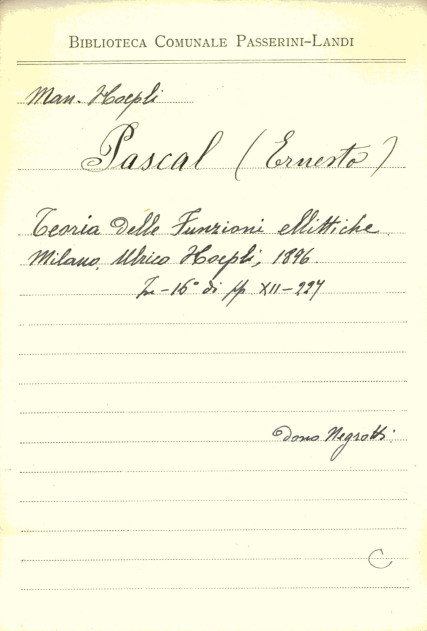 BIBLIOTECA COMUNALE PASSERINI-LANDI
Man. Hoepli
Pascal (Ernesto)
Teoria delle Funzioni ellittiche
Milano, Ulrico Hoepli, 1896
In-16° di pp XII-227
Dono Negrotti.
C